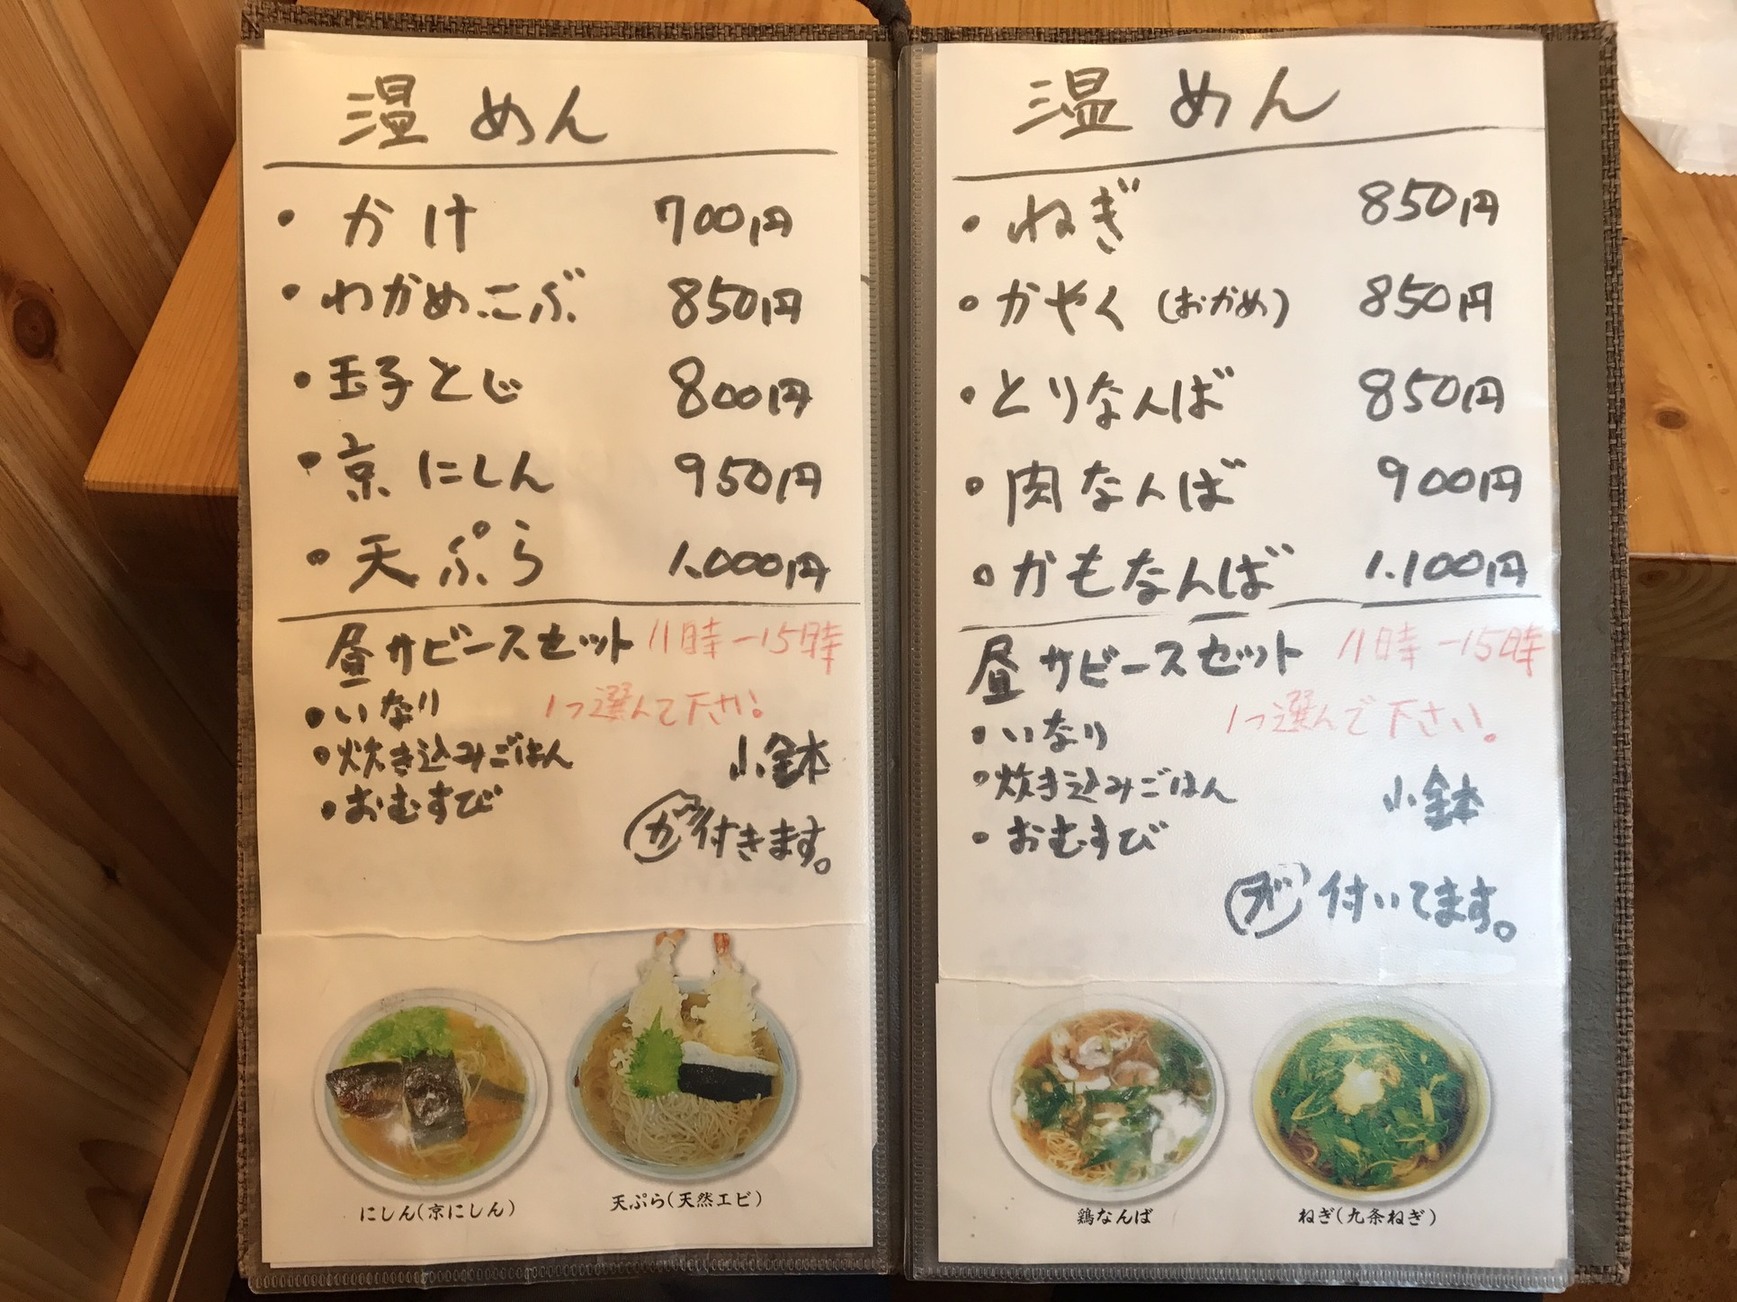 温めん
・かけ 700円
・わかめこぶ 850円
・玉子とじ 800円
・京にしん 950円
・天ぷら 1.000円
昼サビースセット 11時-15時
・いなり 1つ選んで下さい!
・炊き込みごはん 小鉢
・おむすび
が付きます。
にしん(京にしん)
天ぷら(天然エビ)
温めん
・ねぎ 850円
・かやく(おかめ) 850円
・とりなんば 850円
・肉なんば 900円
・かもなんば 1.100円
昼サビースセット 11時-15時
・いなり 1つ選んで下さい!
・炊き込みごはん 小鉢
・おむすび
が付いてます。
鶏なんば
ねぎ(九条ねぎ)